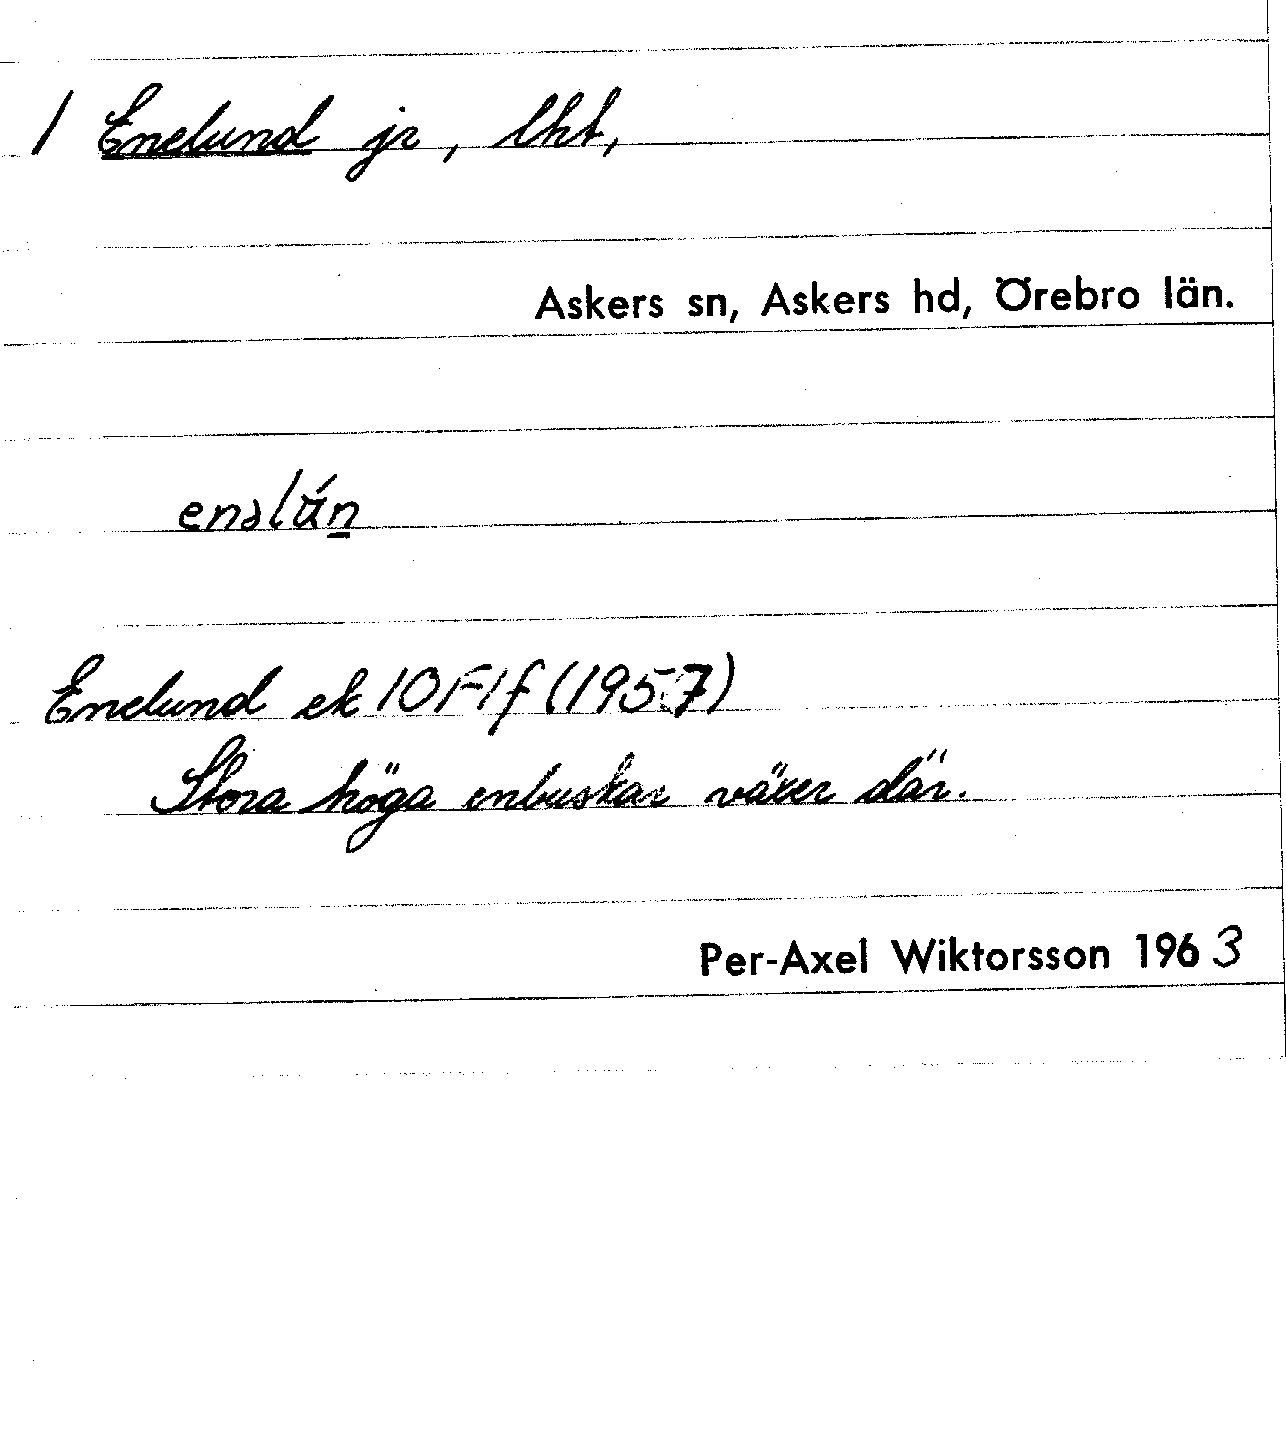 1 Enelund jr, lht,
Askers sn, Askers hd, Örebro län.
Enelund ek 10F1f (1957)
Stora höga enbuskar växer där.
Per-Axel Wiktorsson 1963